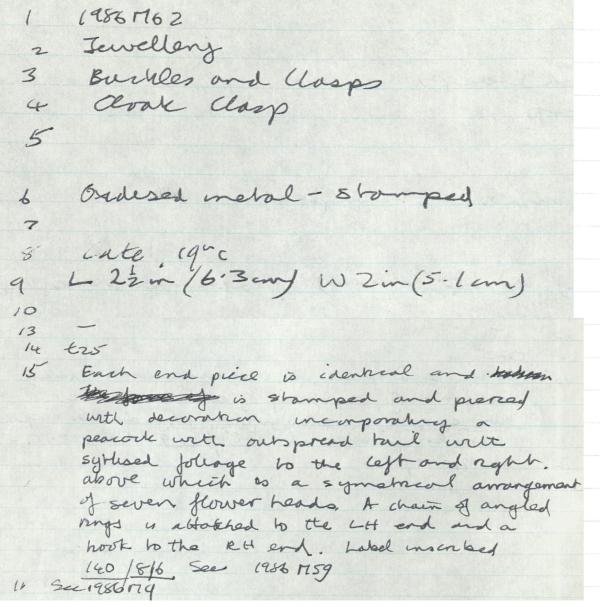 1 1986 M62
2 Jewellery
3 Buckles and Clasps
4 Cloak Clasp
5
6 Oxidesed metal - stamped
7
8 Late 19th c
9 L 2½ in (6.3cm) W 2in (5.1cm)
10
13 —
14 £25
15 Each end piece is identical and
is stamped and pierced
with decoration incorporating a
peacock with outspread tail with
sytlised foliage to the left and right.
above which is a symetrical arrangement
of seven flower heads. A chain of angled
rings is attatched to the LH end and a
hook to the RH end. Label inscribed
140/8/6. See 1986 M59
11 See 1986 M9